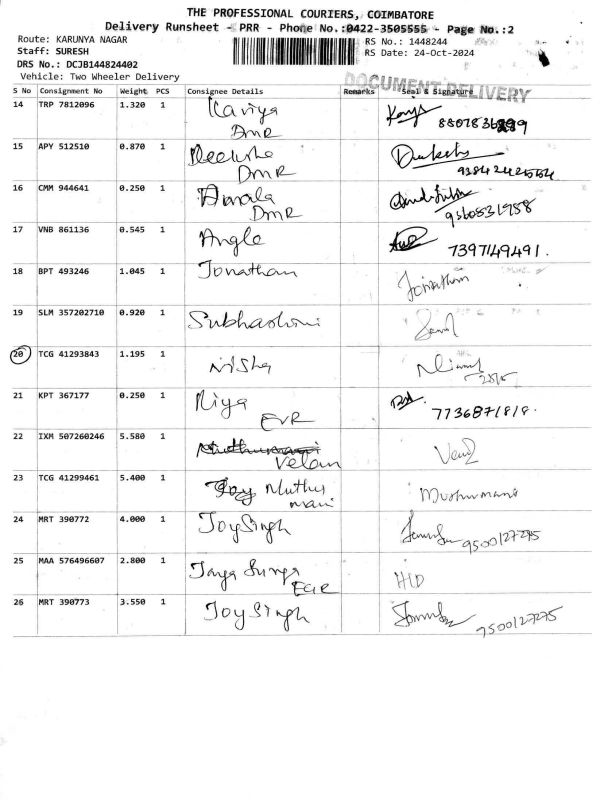 THE PROFESSIONAL COURIERS, COIMBATORE
Delivery Runsheet - PRR - Phone No.:0422-3505555 - Page No.:2
Route: KARUNYA NAGAR
RS No.: 1448244
Staff: SURESH
RS Date: 24-Oct-2024
DRS No.: DCJB144824402
Vehicle: Two Wheeler Delivery
DOCUMENT DELIVERY
S No Consignment No Weight PCS Consignee Details Remarks Seal & Signature
14 TRP 7812096 1.320 1 Kaviya
DMR
15 APY 512510 0.870 1
DMR
16 CMM 944641 0.250 1 Amala
DMR 9360531958
17 VNB 861136 0.545 1 Angle 7397149491.
18 BPT 493246 1.045 1 Jonathan Jonathan
19 SLM 357202710 0.920 1 Subhashini
20 TCG 41293843 1.195 1 Nisha
21 KPT 367177 0.250 1 Riya
EVR 7736871818.
22 IXM 507260246 5.580 1
Velan
23 TCG 41299461 5.400 1 Joy Muthu
mani Muthumani
24 MRT 390772 4.000 1 Joy Singh 9500127275
25 MAA 576496607 2.800 1 Jaya Surya
HID
26 MRT 390773 3.550 1 Joy Singh
9500127275